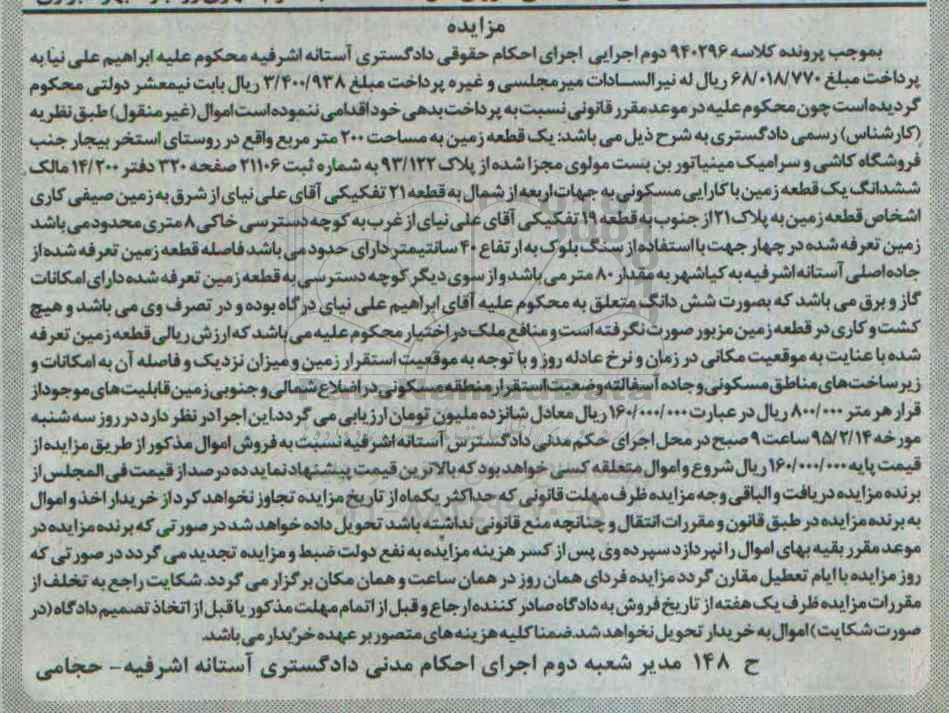 مزایده
بموجب پرونده کلاسه ۹۴۰۲۹۶ دوم اجرایی اجرای احکام حقوقی دادگستری آستانه اشرفیه محکوم علیه ابراهیم علی نیا به
پرداخت مبلغ ۶۸/۰۱۸/۷۷۰ ریال له نیرالسادات میرمجلسی و غیره پرداخت مبلغ ۳/۴۰۰/۹۳۸ ریال بابت نیمعشر دولتی محکوم
گردیده است چون محکوم علیه در موعد مقرر قانونی نسبت به پرداخت بدهی خود اقدامی ننموده است اموال (غیر منقول) طبق نظریه
(کارشناس) رسمی دادگستری به شرح ذیل می باشد: یک قطعه زمین به مساحت ۲۰۰ متر مربع واقع در روستای استخر بیجار جنب
فروشگاه کاشی و سرامیک مینیاتور بن بست مولوی مجزا شده از پلاک ۹۳/۱۲۲ به شماره ثبت ۲۱۱۰۶ صفحه ۳۲۰ دفتر ۱۴/۲۰۰ مالک
ششدانگ یک قطعه زمین با کارایی مسکونی به جهات اربعه از شمال به قطعه ۲۱ تفکیکی آقای علی نیای از شرق به زمین صیفی کاری
اشخاص قطعه زمین به پلاک ۲۱ از جنوب به قطعه ۱۹ تفکیکی آقای علی نیای از غرب به کوچه دسترسی خاکی ۸ متری محدود می باشد
زمین تعرفه شده در چهار جهت با استفاده از سنگ بلوک به ارتفاع ۴۰ سانتیمتر دارای حدود می باشد فاصله قطعه زمین تعرفه شده از
جاده اصلی آستانه اشرفیه به کیاشهر به مقدار ۸۰ متر می باشد و از سوی دیگر کوچه دسترسی به قطعه زمین تعرفه شده دارای امکانات
گاز و برق می باشد که بصورت شش دانگ متعلق به محکوم علیه آقای ابراهیم علی نیای درگاه بوده و در تصرف وی می باشد و هیچ
کشت و کاری در قطعه زمین مزبور صورت نگرفته است و منافع ملک در اختیار محکوم علیه می باشد که ارزش ریالی قطعه زمین تعرفه
شده با عنایت به موقعیت مکانی در زمان و نرخ عادله روز و با توجه به موقعیت استقرار زمین و میزان نزدیک و فاصله آن به امکانات و
زیر ساخت های مناطق مسکونی و جاده آسفالته وضعیت استقرار منطقه مسکونی در اضلاع شمالی و جنوبی زمین قابلیت های موجود از
قرار هر متر ۸۰۰/۰۰۰ ریال در عبارت ۱۶۰/۰۰۰/۰۰۰ ریال معادل شانزده ملیون تومان ارزیابی می گردد این اجرا در نظر دارد در روز سه شنبه
مورخه ۹۵/۲/۱۴ ساعت ۹ صبح در محل اجرای حکم مدنی دادگسترش آستانه اشرفیه نسبت به فروش اموال مذکور از طریق مزایده از
قیمت پایه ۱۶۰/۰۰۰/۰۰۰ ریال شروع و اموال متعلقه کسی خواهد بود که بالاترین قیمت پیشنهاد نماید ده درصد از قیمت فی المجلس از
برنده مزایده دریافت و الباقی وجه مزایده ظرف مهلت قانونی که حداکثر یکماه از تاریخ مزایده تجاوز نخواهد کرد از خریدار اخذ و اموال
به برنده مزایده در طبق قانون و مقررات انتقال و چنانچه منع قانونی نداشته باشد تحویل داده خواهد شد در صورتی که برنده مزایده در
موعد مقرر بقیه بهای اموال را نپردازد سپرده وی پس از کسر هزینه مزایده به نفع دولت ضبط و مزایده تجدید می گردد در صورتی که
روز مزایده با ایام تعطیل مقارن گردد مزایده فردای همان روز در همان ساعت و همان مکان برگزار می گردد. شکایت راجع به تخلف از
مقررات مزایده ظرف یک هفته از تاریخ فروش به دادگاه صادر کننده ارجاع و قبل از اتمام مهلت مذکور یا قبل از اتخاذ تصمیم دادگاه (در
صورت شکایت) اموال به خریدار تحویل نخواهد شد. ضمنا کلیه هزینه های متصور بر عهده خریدار می باشد.
ح ۱۴۸ مدیر شعبه دوم اجرای احکام مدنی دادگستری آستانه اشرفیه - حجامی